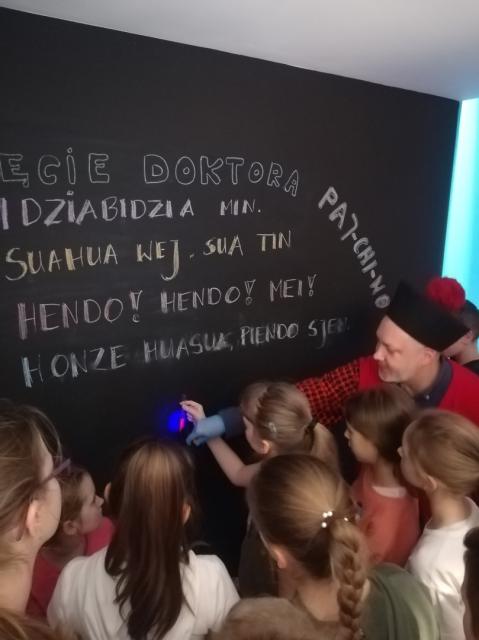 ĘCIE DOKTORA
I DZIABIDZI A MIN.
SUAHUA WEJ. SUA TIN
HENDO! HENDO! MEI!
HONZE HUASUA, PIENDO SJEN.
PAJ-CHI-WO